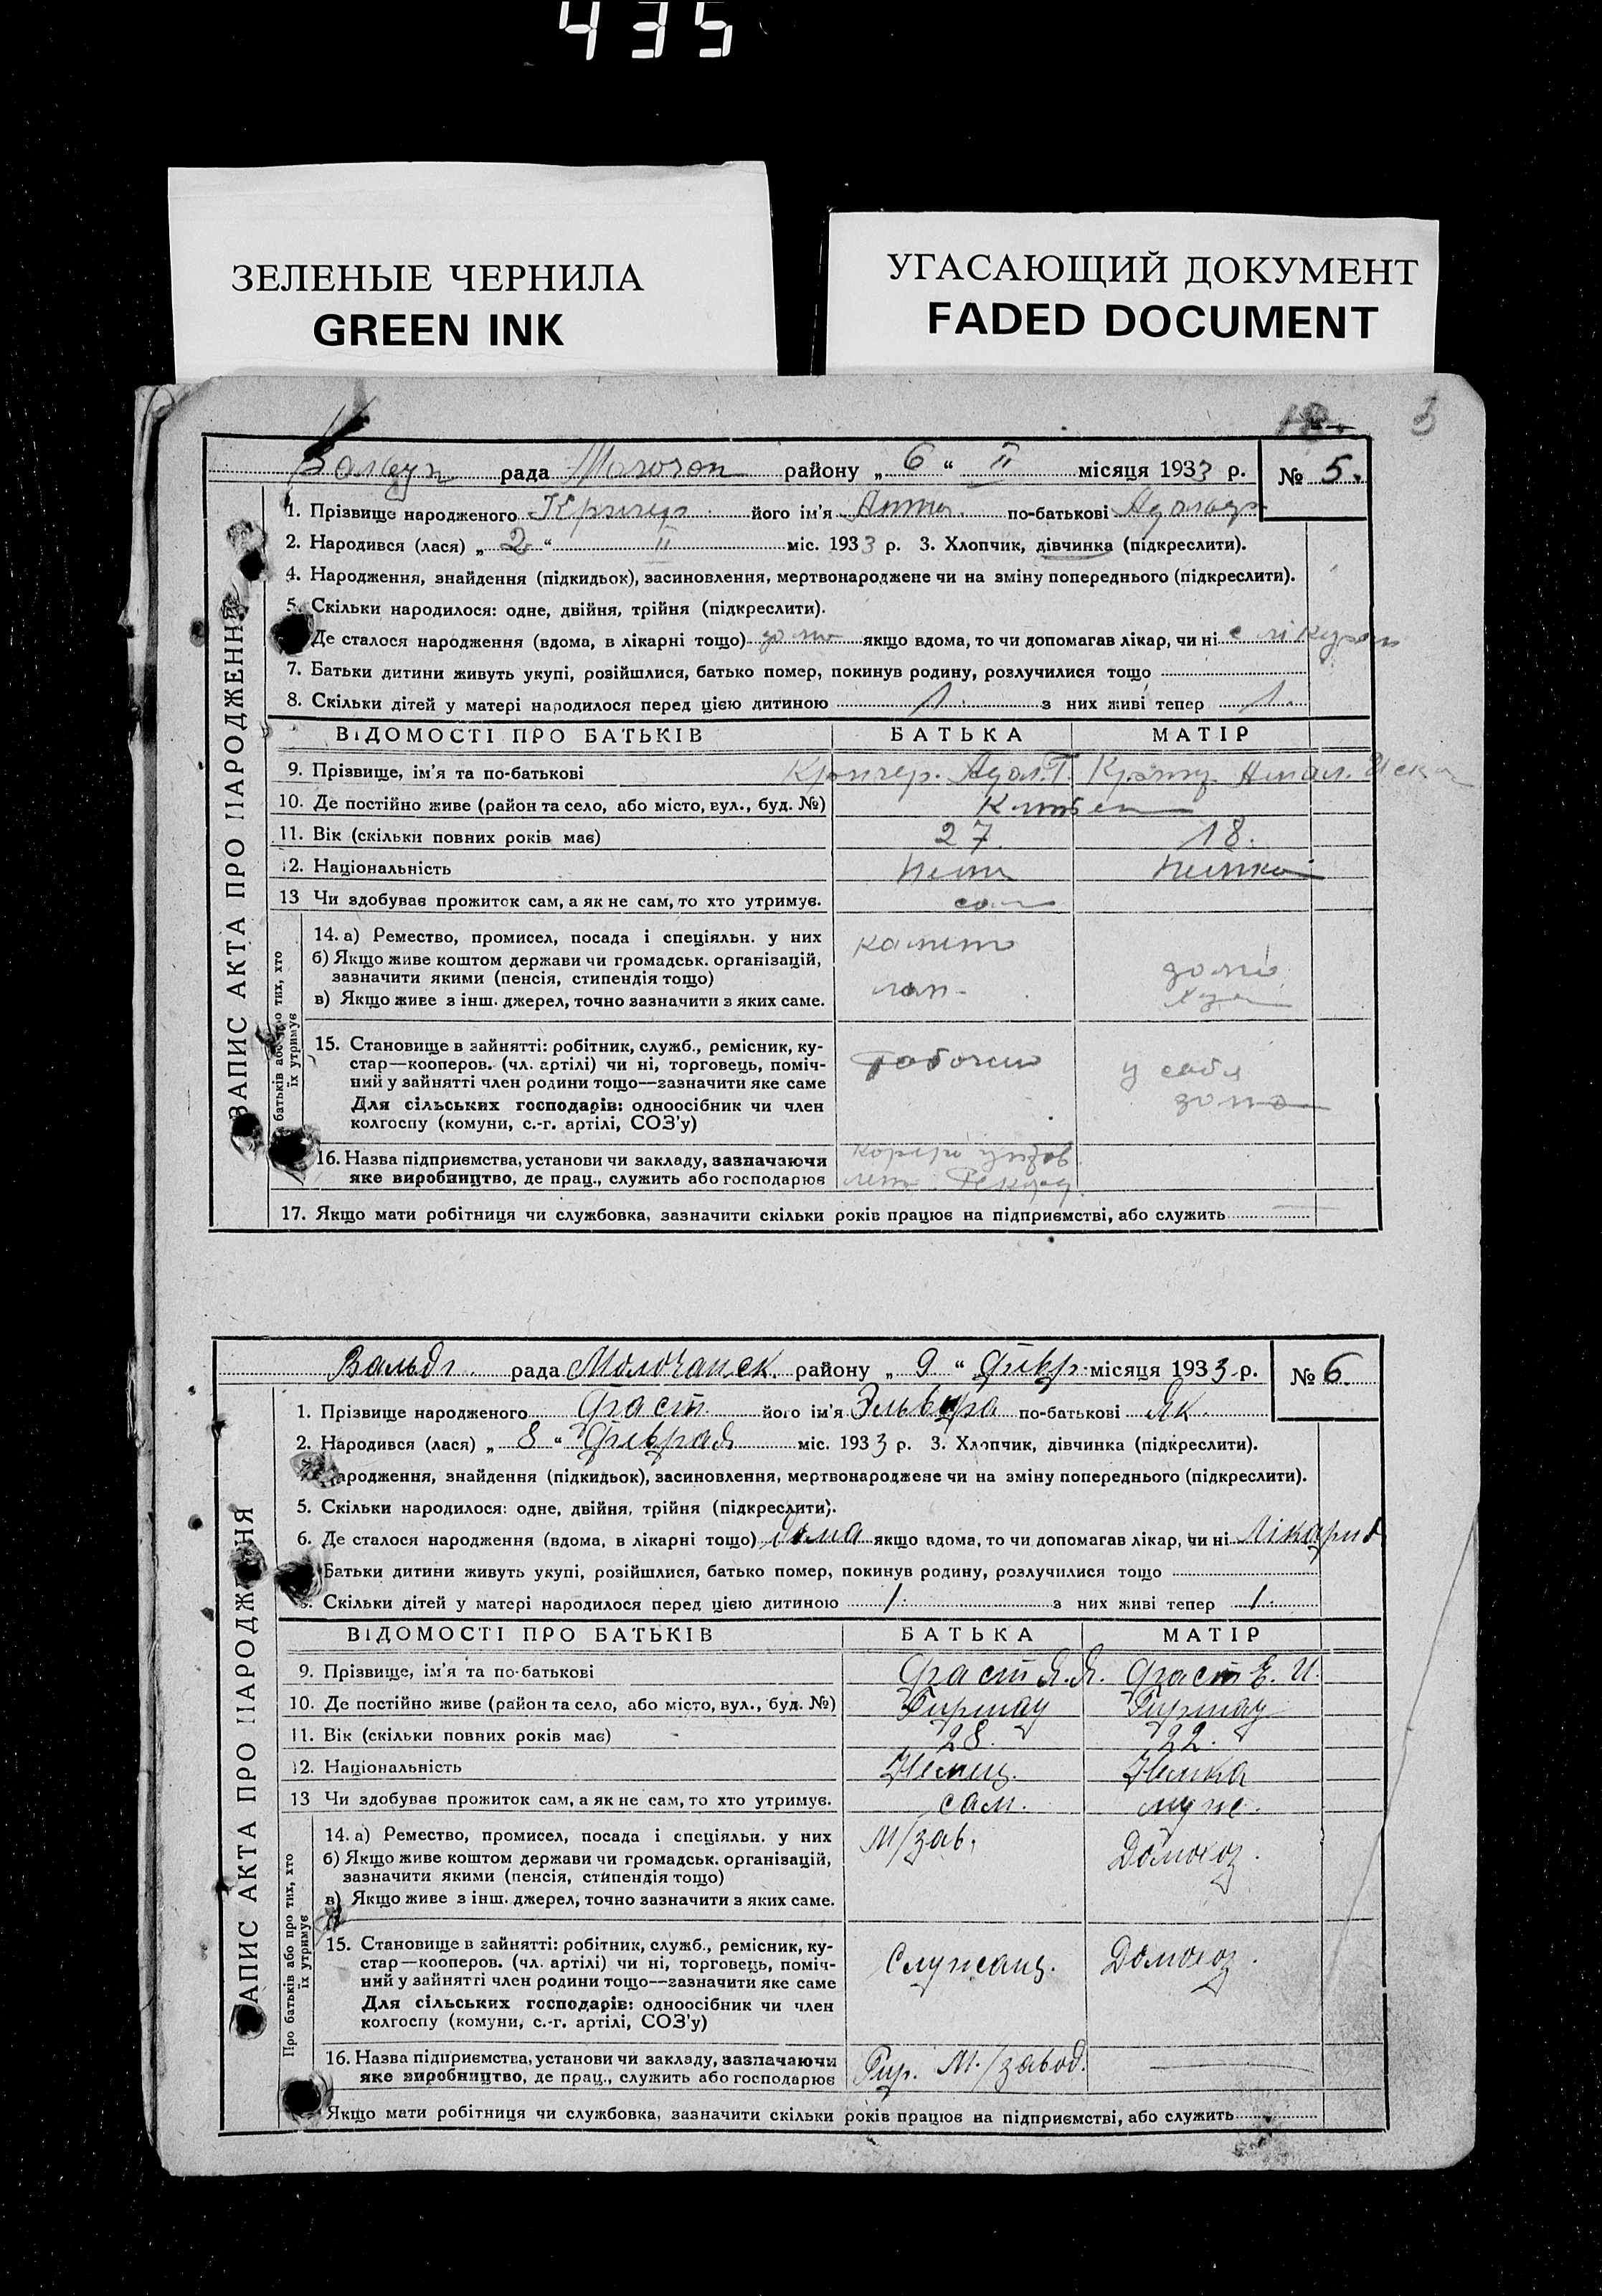 435
ЗЕЛЕНЫЕ ЧЕРНИЛА
GREEN INK
УГАСАЮЩИЙ ДОКУМЕНТ
FADED DOCUMENT
3
рада района „ 6 “ II місяця 1933 р. № 5.
1. Прізвище народженого його ім'я по-батькові
2. Народився (лася) „ 2 “ II міс. 1933 р. 3. Хлопчик, дівчинка (підкреслити).
4. Народження, знайдення (підкидьок), засиновлення, мертвонароджене чи на зміну попереднього (підкреслити).
5. Скільки народилося: одне, двійня, трійня (підкреслити).
Де сталося народження (вдома, в лікарні тощо) якщо вдома, то чи допомагав лікар, чи ні
7. Батьки дитини живуть укупі, розійшлися, батько помер, покинув родину, розлучилися тощо
8. Скільки дітей у матері народилося перед цією дитиною 1. з них живі тепер 1.
ВІДОМОСТІ ПРО БАТЬКІВ БАТЬКА МАТІР
9. Прізвище, ім'я та по-батькові
10. Де постійно живе (район та село, або місто, вул., буд. №)
11. Вік (скільки повних років має) 27. 18.
12. Національність Немка
13 Чи здобуває прожиток сам, а як не сам, то хто утримує. сам
14. а) Ремество, промисел, посада і спеціяльн. у них
б) Якщо живе коштом держави чи громадськ. організацій,
зазначити якими (пенсія, стипендія тощо)
в) Якщо живе з інш. джерел, точно зазначити з яких саме.
15. Становище в зайнятті: робітник, служб., ремісник, ку-
стар—кооперов. (чл. артілі) чи ні, торговець, поміч-
ний у зайнятті член родини тощо—зазначити яке саме
Для сільських господарів: одноосібник чи член
колгоспу (комуни, с.-г. артілі, СОЗ'у)
16. Назва підприємства, установи чи закладу, зазначаючи
яке виробництво, де прац., служить або господарює
17. Якщо мати робітниця чи службовка, зазначити скільки років працює на підприємстві, або служить
ЗАПИС АКТА ПРО НАРОДЖЕННЯ
батьків або про тих, хто
їх утримує
Вальдг. рада Молочанск. району „ 9 “ февр. місяця 1933 р. № 6.
1. Прізвище народженого Фаст його ім'я Эльвира по-батькові Як.
2. Народився (лася) „ 8 “ Февраля міс. 1933 р. 3. Хлопчик, дівчинка (підкреслити).
ародження, знайдення (підкидьок), засиновлення, мертвонароджене чи на зміну попереднього (підкреслити).
5. Скільки народилося: одне, двійня, трійня (підкреслити).
6. Де сталося народження (вдома, в лікарні тощо) дома якщо вдома, то чи допомагав лікар, чи ні
Батьки дитини живуть укупі, розійшлися, батько помер, покинув родину, розлучилися тощо
Скільки дітей у матері народилося перед цією дитиною 1. з них живі тепер 1.
ВІДОМОСТІ ПРО БАТЬКІВ БАТЬКА МАТІР
9. Прізвище, ім'я та по-батькові Фаст Я. Я. Фаст Е. И.
10. Де постійно живе (район та село, або місто, вул., буд. №) Гиршау Гиршау
11. Вік (скільки повних років має) 28. 22.
12. Національність Немец. Немка
13 Чи здобуває прожиток сам, а як не сам, то хто утримує. сам. муж.
14. а) Ремество, промисел, посада і спеціяльн. у них М/зав. Домохоз.
б) Якщо живе коштом держави чи громадськ. організацій,
зазначити якими (пенсія, стипендія тощо)
в) Якщо живе з інш. джерел, точно зазначити з яких саме.
15. Становище в зайнятті: робітник, служб., ремісник, ку- Служащ. Домохоз.
стар—кооперов. (чл. артілі) чи ні, торговець, поміч-
ний у зайнятті член родини тощо—зазначити яке саме
Для сільських господарів: одноосібник чи член
колгоспу (комуни, с.-г. артілі, СОЗ'у)
16. Назва підприємства, установи чи закладу, зазначаючи Гир. М./завод.
яке виробництво, де прац., служить або господарює
Якщо мати робітниця чи службовка, зазначити скільки років працює на підприємстві, або служить
АПИС АКТА ПРО НАРОДЖ НЯ
Про батьків або про тих, хто
їх утримує